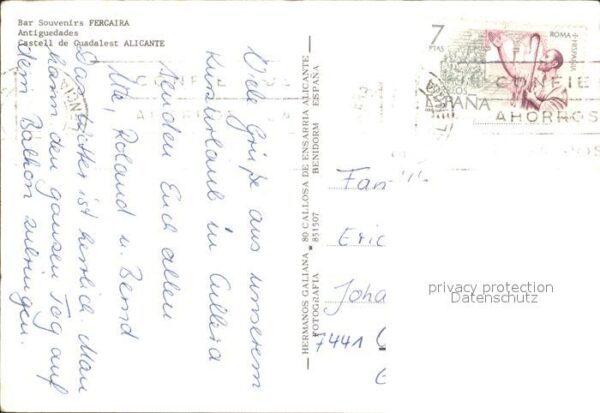 Bar Souvenirs FERCAIRA
Antiguedades
Castell de Guadalest ALICANTE
Viele Grüße aus unserem
Kurzurlaub in Cullera
senden Euch allen
Ute, Roland u. Bernd
Das Wetter ist herrlich. Man
kann den ganzen Tag auf
dem Balkon zubringen.
— HERMANOS GALIANA * 80 CALLOSA DE ENSARRIA ALICANTE —
FOTOGRAFIA * 851507 BENIDORM ESPAÑA
7
PTAS
ROMA
HISPANIA
ESPAÑA
CONFIE
AHORROS
Fam
Eric
Joha
7441
privacy protection
Datenschutz